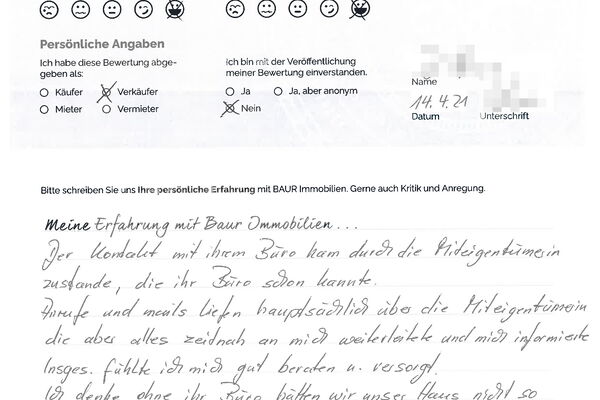 Persönliche Angaben
Ich habe diese Bewertung abge-
geben als:
Käufer Verkäufer
Mieter Vermieter
Ich bin mit der Veröffentlichung
meiner Bewertung einverstanden.
Ja Ja, aber anonym
Nein
Name
14.4.21
Datum Unterschrift
Bitte schreiben Sie uns Ihre persönliche Erfahrung mit BAUR Immobilien. Gerne auch Kritik und Anregung.
Meine Erfahrung mit Baur Immobilien...
Der Kontakt mit ihrem Büro kam durch die Miteigentümerin
zustande, die ihr Büro schon kannte.
Anrufe und mails liefen hauptsächlich über die Miteigentümerin
die aber alles zeitnah an mich weiterleitete und mich informierte
Insges. fühlte ich mich gut beraten u. versorgt.
Ich denke ohne ihr Büro hätten wir unser Haus nicht so